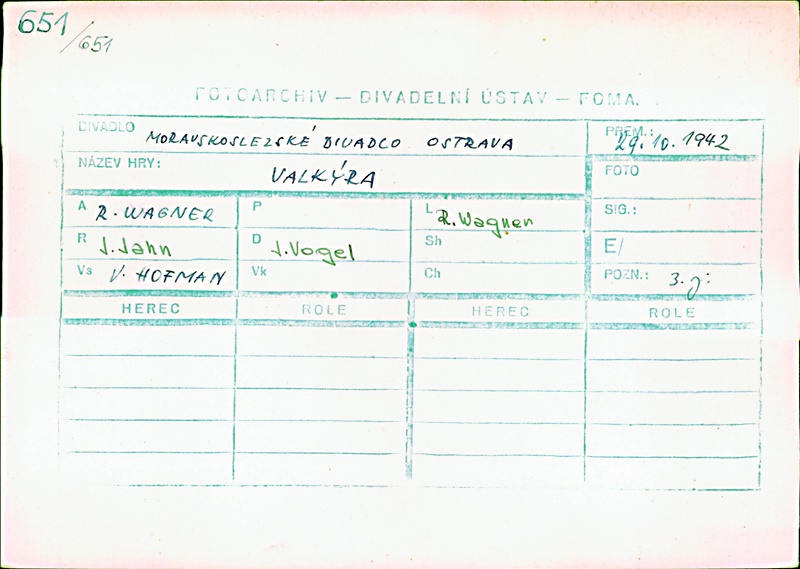 651/651
FOTOARCHIV — DIVADELNÍ ÚSTAV — FOMA.
DIVADLO MORAVSKOSLEZSKÉ DIVADLO OSTRAVA PREM.: 29.10.1942
NÁZEV HRY: VALKÝRA FOTO
A R. WAGNER P L R. Wagner SIG.:
R J. Jahn D J. Vogel Sh E/
Vs V. HOFMAN Vk Ch POZN.: 3.j:
HEREC ROLE HEREC ROLE